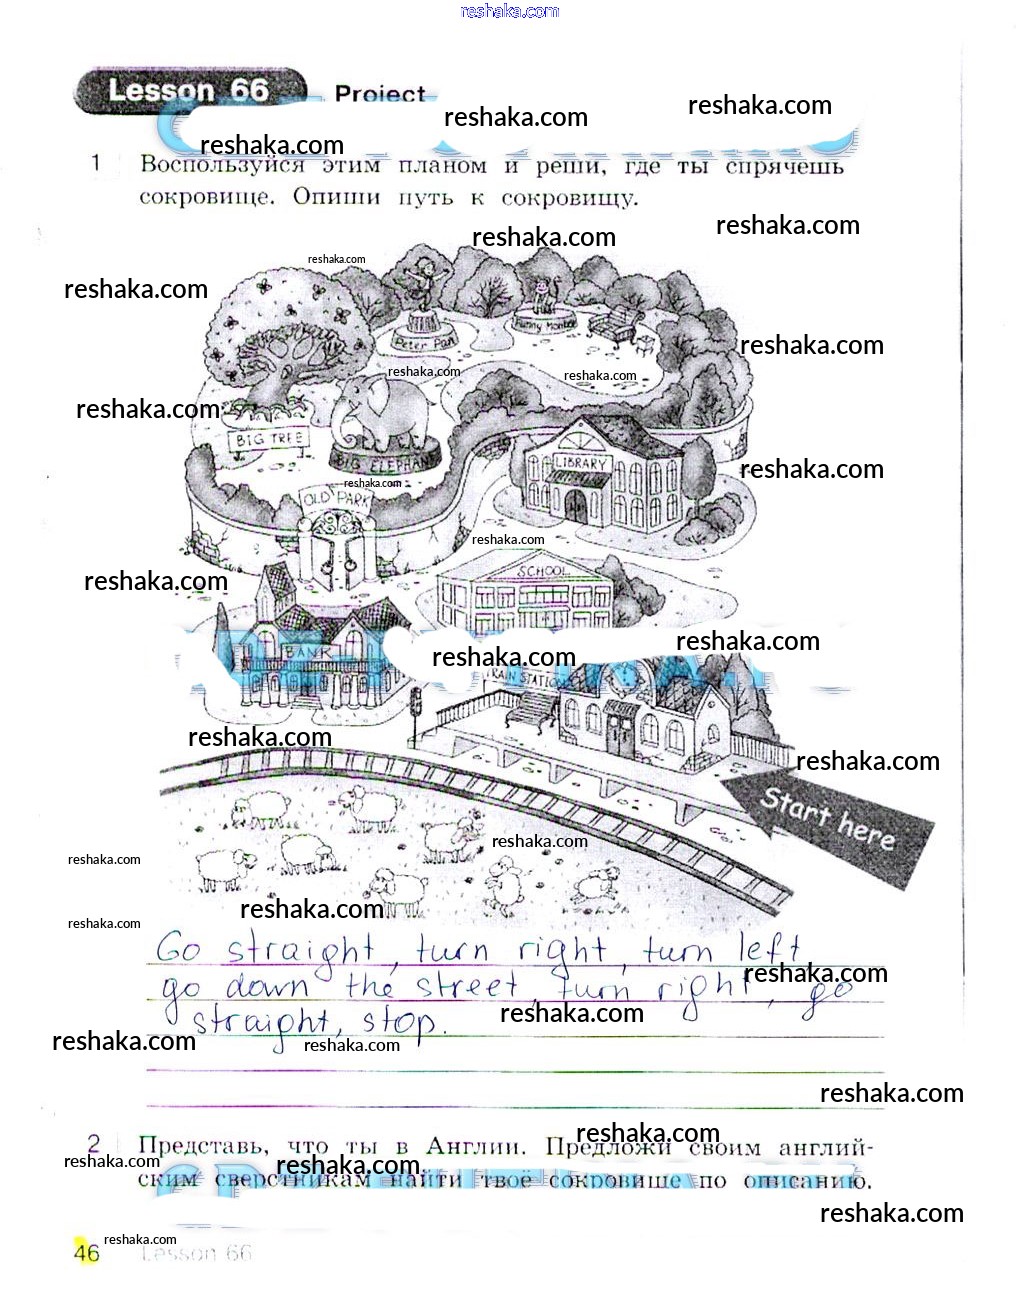 reshaka.com
Lesson 66 Project
reshaka.com reshaka.com
reshaka.com
1 Воспользуйся этим планом и реши, где ты спрячешь
сокровище. Опиши путь к сокровищу.
reshaka.com
reshaka.com
reshaka.com
reshaka.com
Peter Pan
Funny Monkey
reshaka.com
reshaka.com reshaka.com
reshaka.com
BIG TREE
BIG ELEPHANT
LIBRARY
reshaka.com
reshaka.com
OLD PARK
reshaka.com
SCHOOL
reshaka.com
BANK
reshaka.com
reshaka.com
TRAIN STATION
reshaka.com
reshaka.com
Start here
reshaka.com
reshaka.com
reshaka.com
reshaka.com
Go straight, turn right, turn left
reshaka.com
go down the street, turn right, go
reshaka.com
straight, stop.
reshaka.com reshaka.com
reshaka.com
2 Представь, что ты в Англии. Предложи своим англий-
reshaka.com
reshaka.com reshaka.com
ским сверстникам найти твоё сокровище по описанию.
reshaka.com
reshaka.com
46 Lesson 66